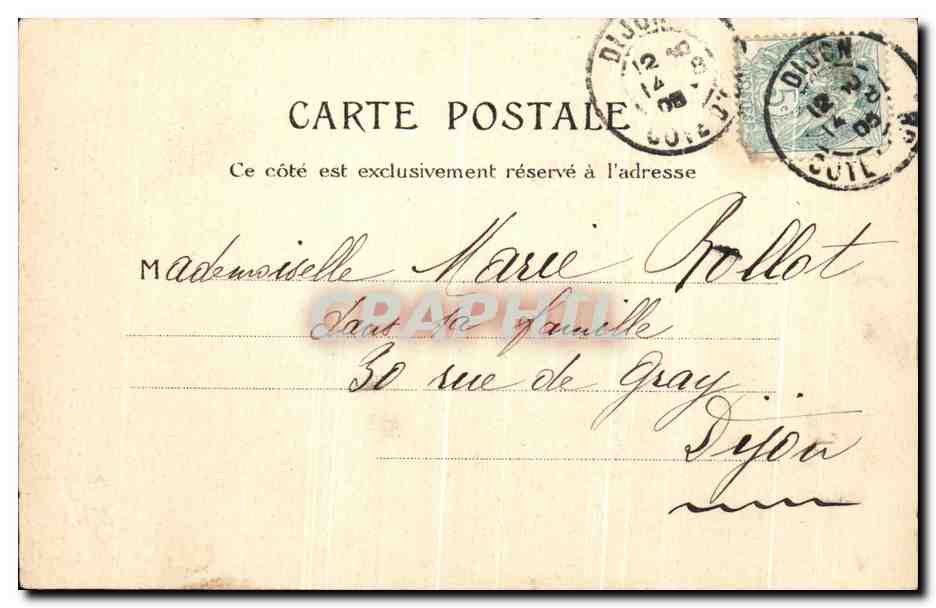 DIJON
12 5
14 -8
05
COTE D'OR
DIJON
12
14
05
COTE D'OR
CARTE POSTALE
Ce côté est exclusivement réservé à l'adresse
Mademoiselle Marie Rollot
dans sa famille
30 rue de Gray
Dijon